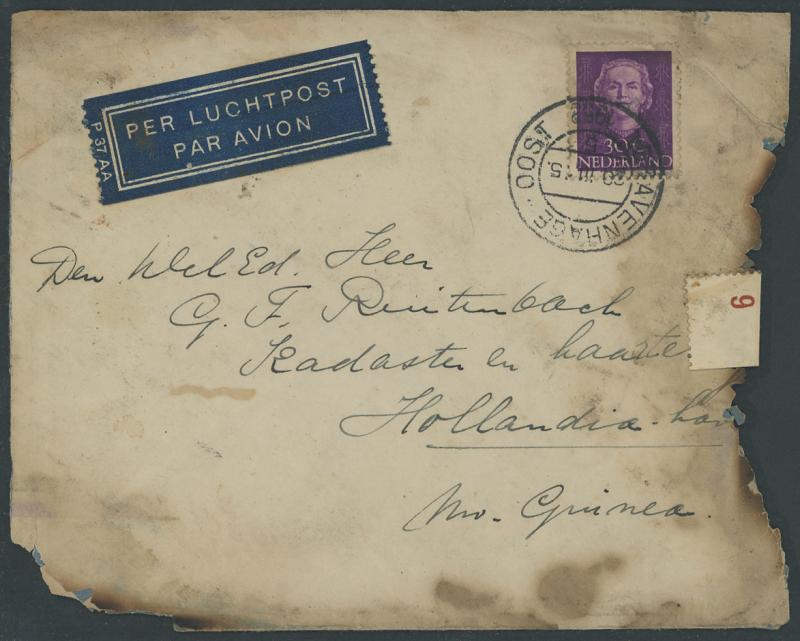 PER LUCHTPOST
PAR AVION
P 37 AA
30
NEDERLAND
AVENHAGE - OOST
1953
Den Wel Ed. Heer
G. F. Reitenbach
Kadaster en
Hollandia-hav
Nw. Guinea.
9